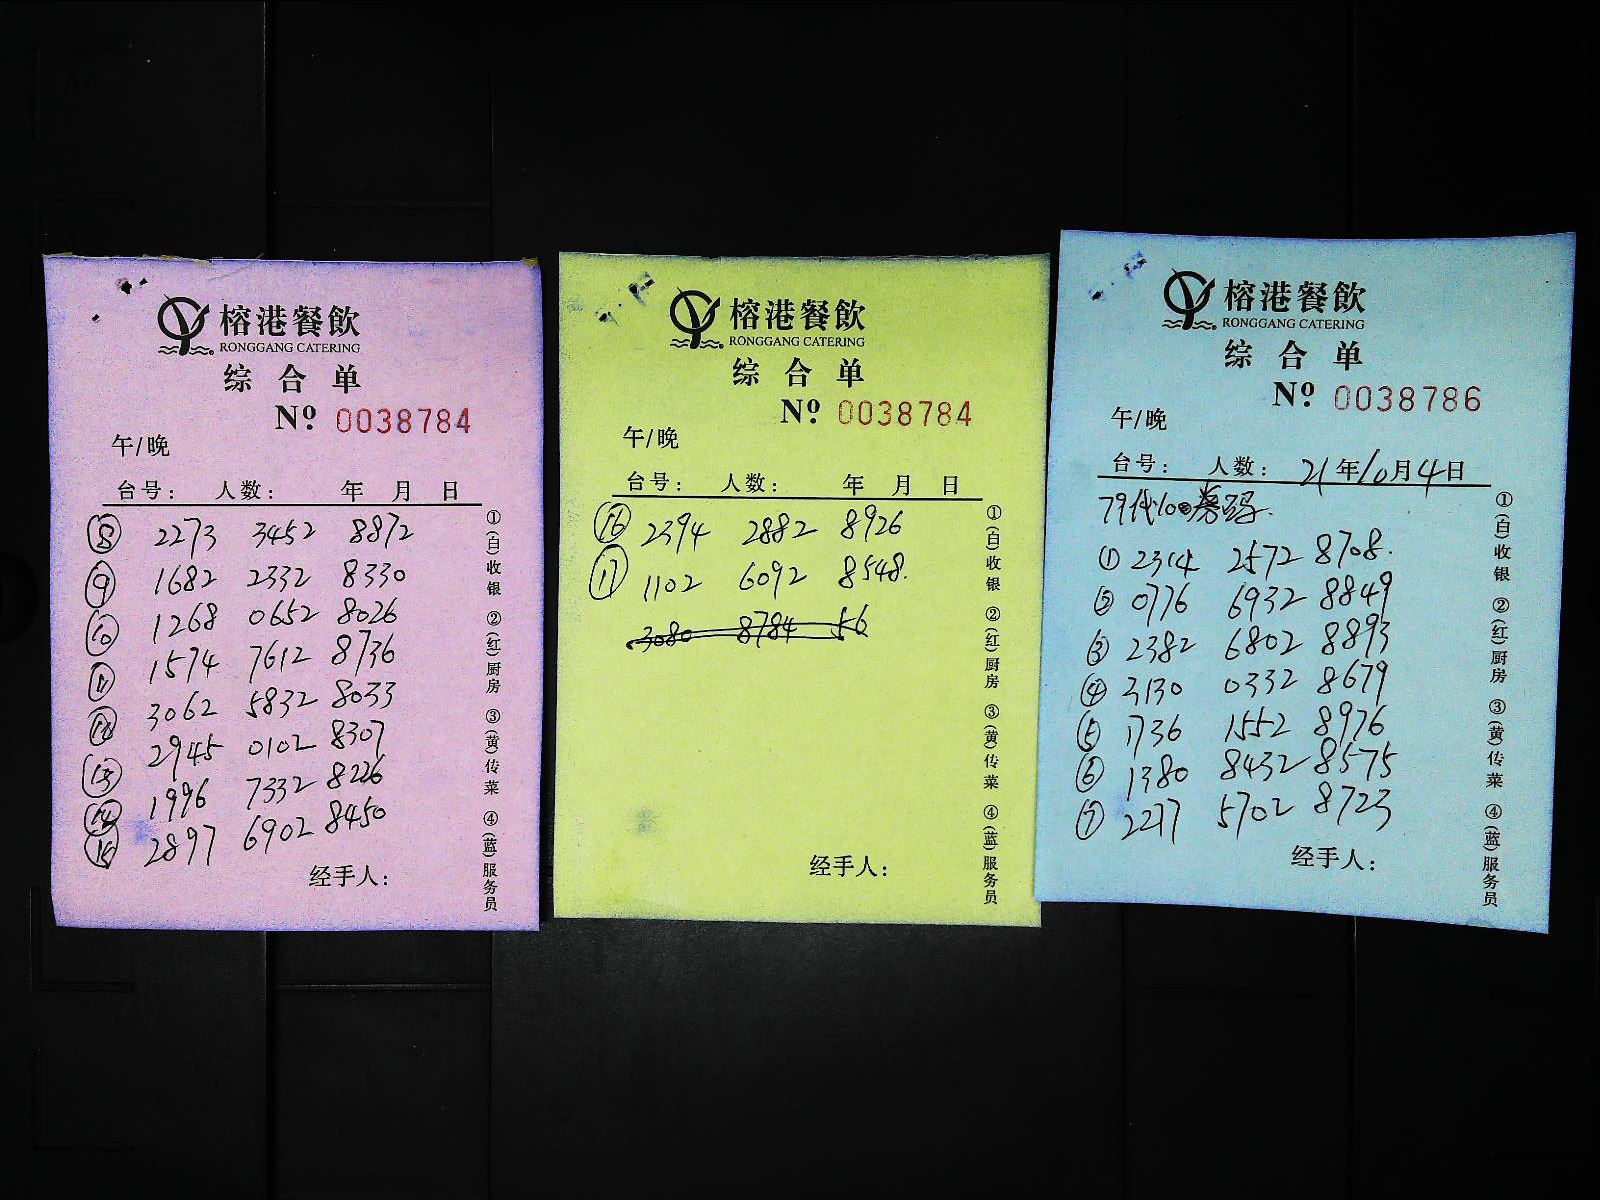 榕港餐飲
RONGGANG CATERING
综合单
Nº 0038784
午/晚
台号: 人数: 年 月 日
⑧ 2273 3452 8872
⑨ 1682 2332 8330
⑩ 1268 0652 8026
⑪ 1574 7612 8736
⑫ 3062 5832 8033
⑬ 2945 0102 8307
⑭ 1996 7332 8226
⑮ 2897 6902 8450
经手人:
①(白)收银 ②(红)厨房 ③(黄)传菜 ④(蓝)服务员
榕港餐飲
RONGGANG CATERING
综合单
Nº 0038784
午/晚
台号: 人数: 年 月 日
⑯ 2394 2882 8926
⑰ 1102 6092 8548.
3080 8784 56
经手人:
①(白)收银 ②(红)厨房 ③(黄)传菜 ④(蓝)服务员
榕港餐飲
RONGGANG CATERING
综合单
Nº 0038786
午/晚
台号: 人数: 21年10月4日
79代100券码.
① 2314 2572 8708.
② 0776 6932 8849
③ 2382 6802 8893
④ 3130 0332 8679
⑤ 1736 1552 8976
⑥ 1380 8432 8575
⑦ 2217 5702 8723
经手人:
①(白)收银 ②(红)厨房 ③(黄)传菜 ④(蓝)服务员